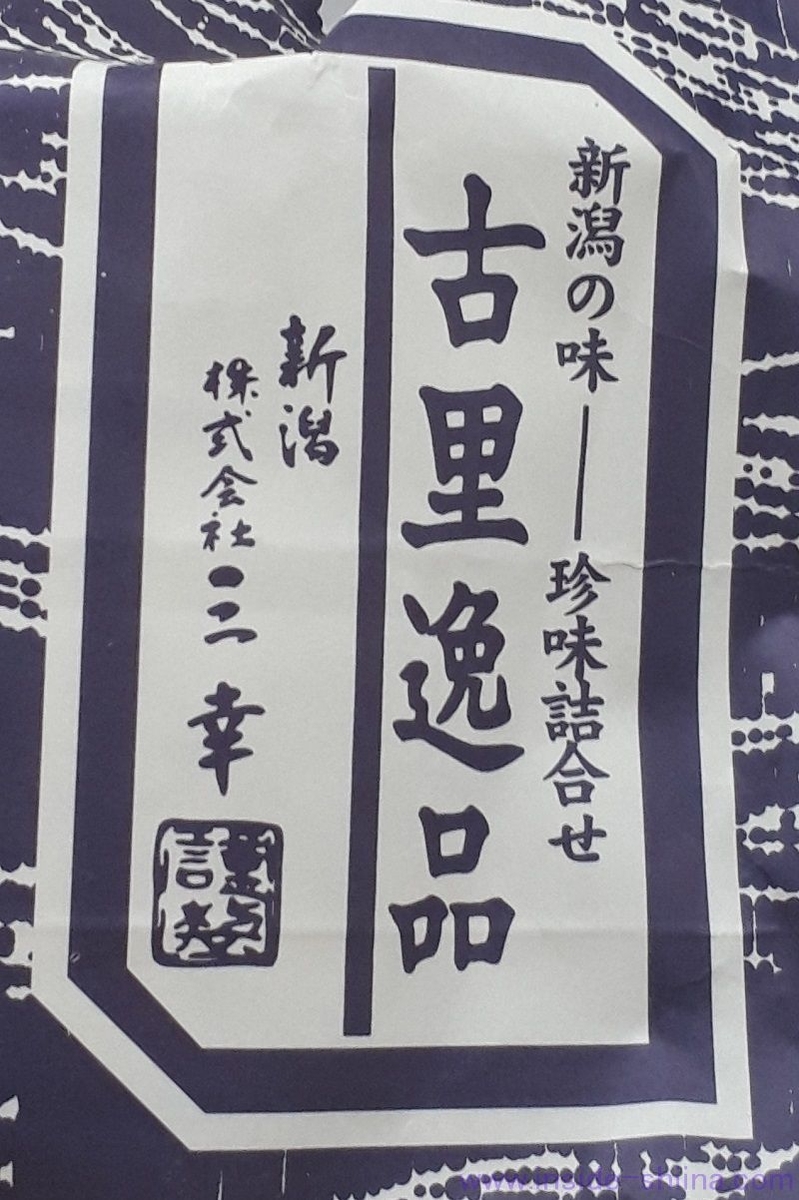 新潟の味——珍味詰合せ
古里逸品
新潟
株式会社三幸
謹製